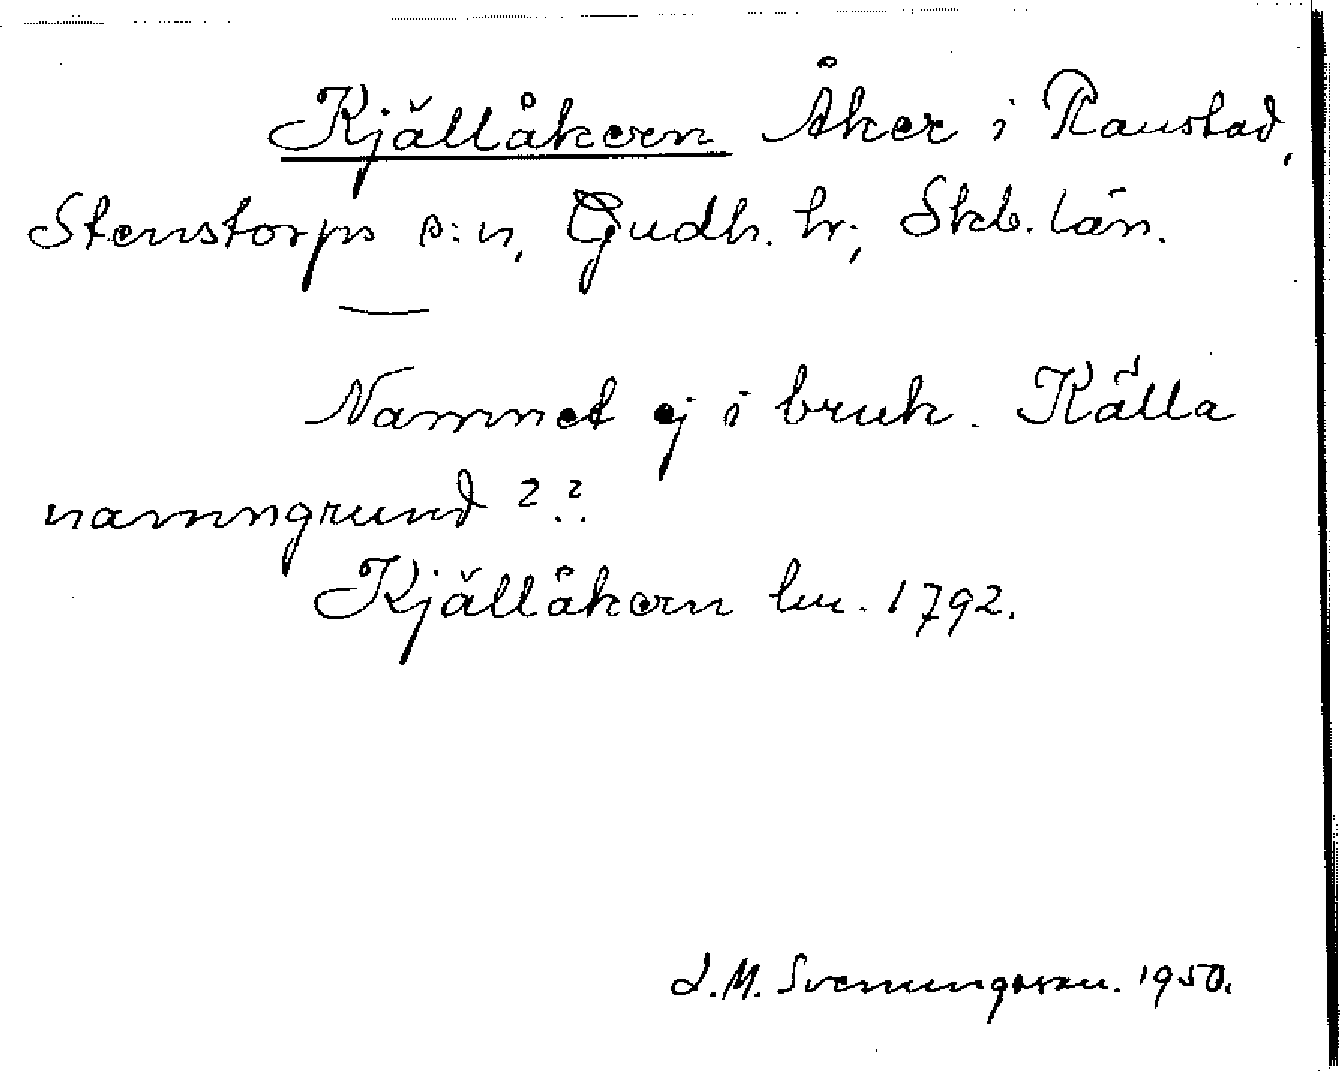 Kjällåkern Åker i Ranstad,
Stenstorps s:n, Gudh. hr., Skb. län.
Namnet ej i bruk. Källa
namngrund ? ?
Kjällåkern lm. 1792.
J. M. Svenungsson. 1950.